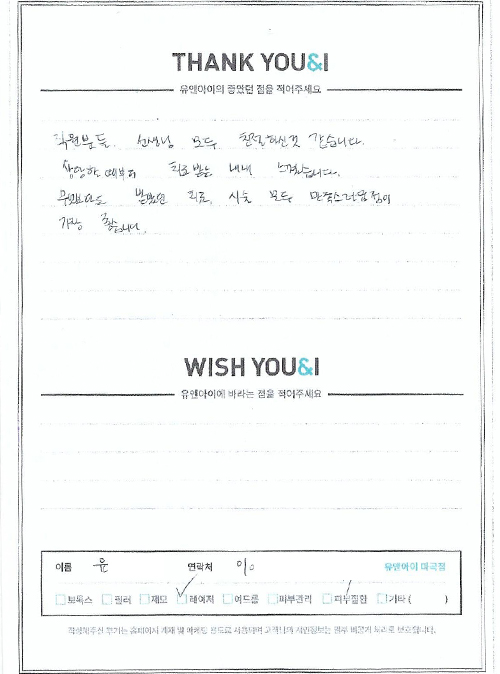 THANK YOU&I
유앤아이의 좋았던 점을 적어주세요
직원분들, 선생님 모두 친절하신 것 같습니다.
상담할 때부터 치료 받는 내내 느꼈습니다.
무엇보다도 받았던 치료, 시술 모두 만족스러운 점이
가장 좋습니다.
WISH YOU&I
유앤아이에 바라는 점을 적어주세요
이름 윤 연락처 010 유앤아이 미금점
보톡스 필러 제모 레이저 여드름 피부관리 피부질환 기타 ( )
작성해주신 후기는 홈페이지 게재 및 마케팅 용도로 사용되며 고객님의 개인정보는 일부 비공개 처리로 보호됩니다.